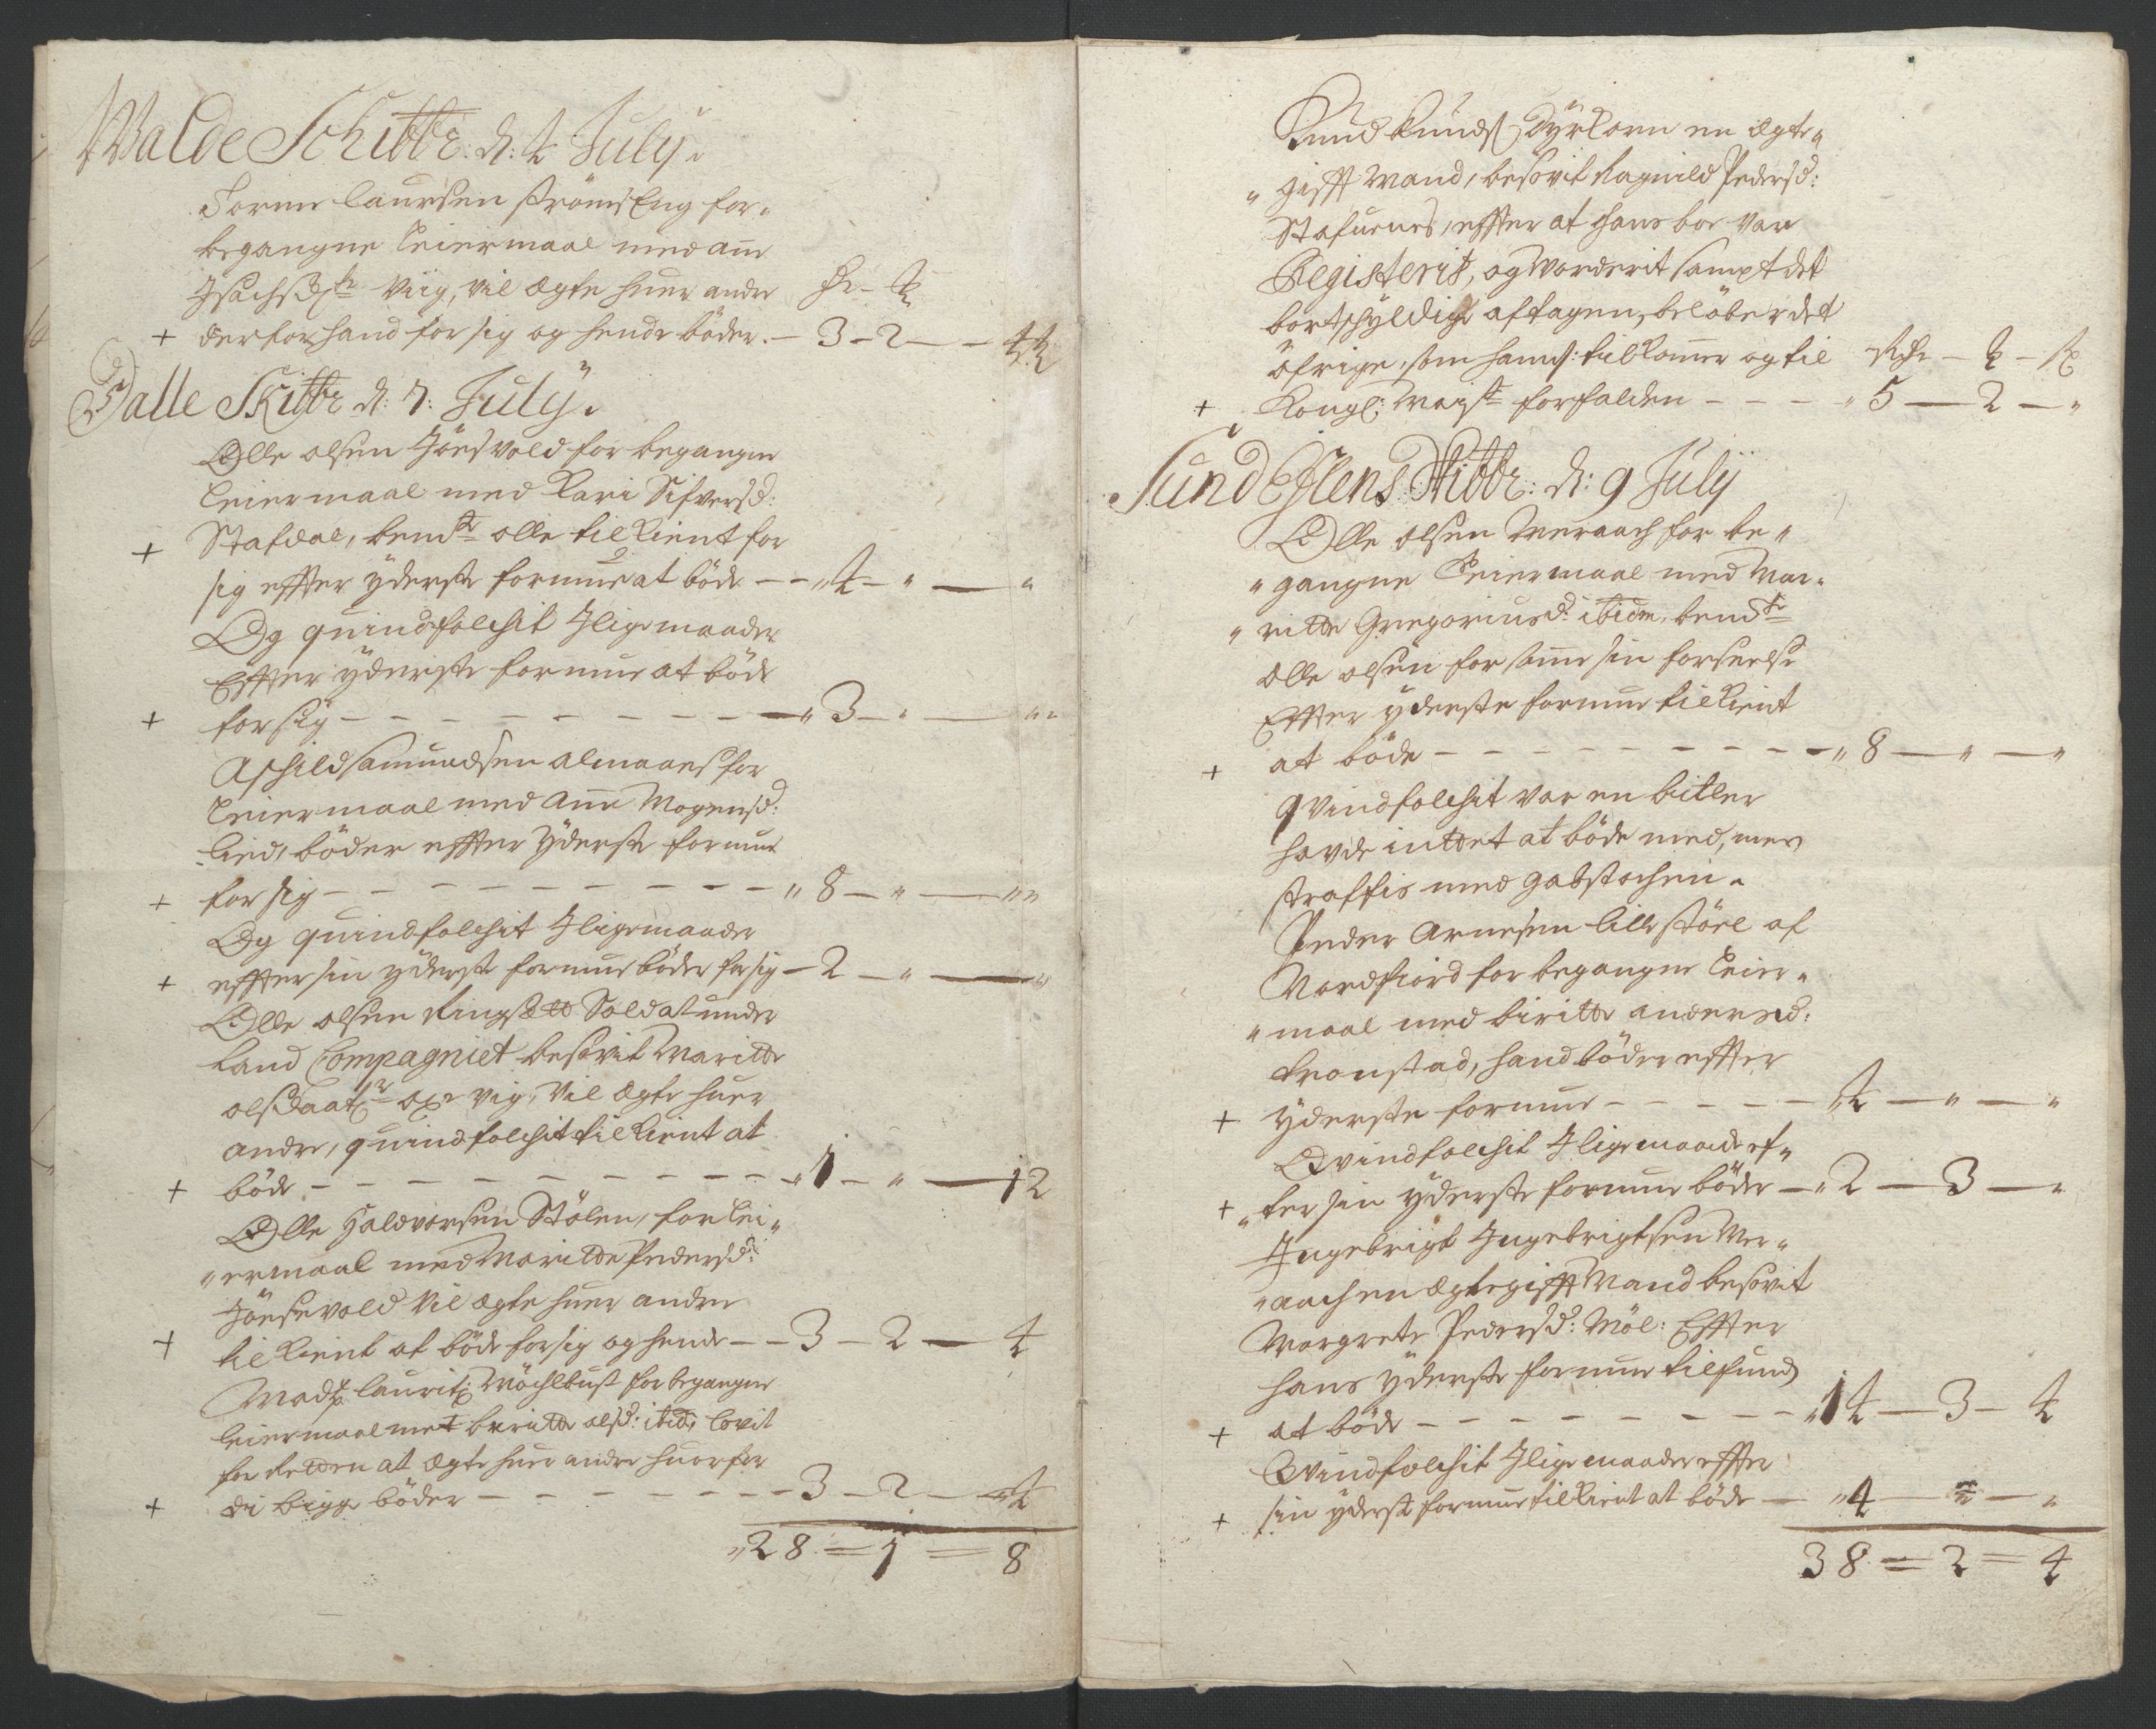 Walde Schibbr: d: 4 July.
Sorne laursen ströms Eng for„
begangne leiermaal med ane
Isachsd viig, vil ægte huer andre
+ derfor hand for sig og hende böder. — 3 – 2 — –
Dalle Skibbr d: 7: July.
Olle olsen Höesvold for begangne
leiermaal med Kari Sifversd:
+ Stafdal, bemte olle tilkient for
sig effter yderste formue at böde – – „ 4 – „ — „
Og quindfolchit Iligemaader
Effter yderste formue at böde
+ for sig – – – – – – – – — „ 3 – „ — „„
Aschild samundsen almaaes for
leiermaal med Ane Mogensd:
lied, böder effter yderste formue
+ for sig – – – – – – – – – „ 8 – „ — „„
Og quindfolchit Iligemaader
+ effter sin yderste formue böder for sig – 2 – „ — „
Olle olsen Ringsetto Soldat under
land Compagniet besovit Maritte
vig, vil ægte huer
andre, quindfolchit tilkient at
+ böde – – – – – – – – – – „ 1 – „ — 12
Olle Haldvorsen Stölen, for lei„
„ermaal med Maritte Pedersd:
Höesevold vil ægte huer andre
+ tilkient at böde for sig og hende – – 3 – 2 — 4
Mads lauritz Möchlbust for begangne
leiermaal met beritte olsd: ibid, lovit
for Retten at ægte huer andre huorfor
+ di bigge böder – – – – – – – 3 – 2 — 4
„28 = 1 = 8
Knud knuds Dyrkorn en ægte„
„gifft Mand, besovit Ragnild Pedersd:
Stafuenes, effter at hans boe var
Registerit, og Worderit sampt det
bortschyldige aftagen, belöber det
öfrige, som hannß: tilkomer og til
+ Kongl: Maist forfalden – – – – „ 5 — 2 — „
Sund Eslens Skibbr: d: 9 July
Olle olsen Meraach for be„
„gangne Leiermaal med Mar„
„ritte Gregoriusd: ibidem, bemte
olle olsen for same sin forseelse
Effter yderste formue tilkient
+ at böde – – – – – – – – – „ 8 — „ — „
qvindfolchit var en bitler
havde intet at böde med, men
straffis med gabstochen.
Peder Arnesen lillestöel af
Nordfiord for begangne leier„
„maal med biritte andersd:
tronstad, hand böder effter
+ yderste formue – – – – – „ 4 — „ — „
Qvindfolchit Iligemaade ef„
+ „ter sin yderste formue böder – „ 2 — 3 — „
Ingebrigt Ingebrigtsen Mer„
„aach en ægtegifft Mand besovit
Margrete Pedersd: Möl: Effter
hans yderste formue tilfund
+ at böde – – – – – – – – „ 14 — 3 – 4
Qvindfolchit Iligemaader effter
+ sin yderste formue tilkient at böde – „ 4 — „ — „
38 = 2 = 4